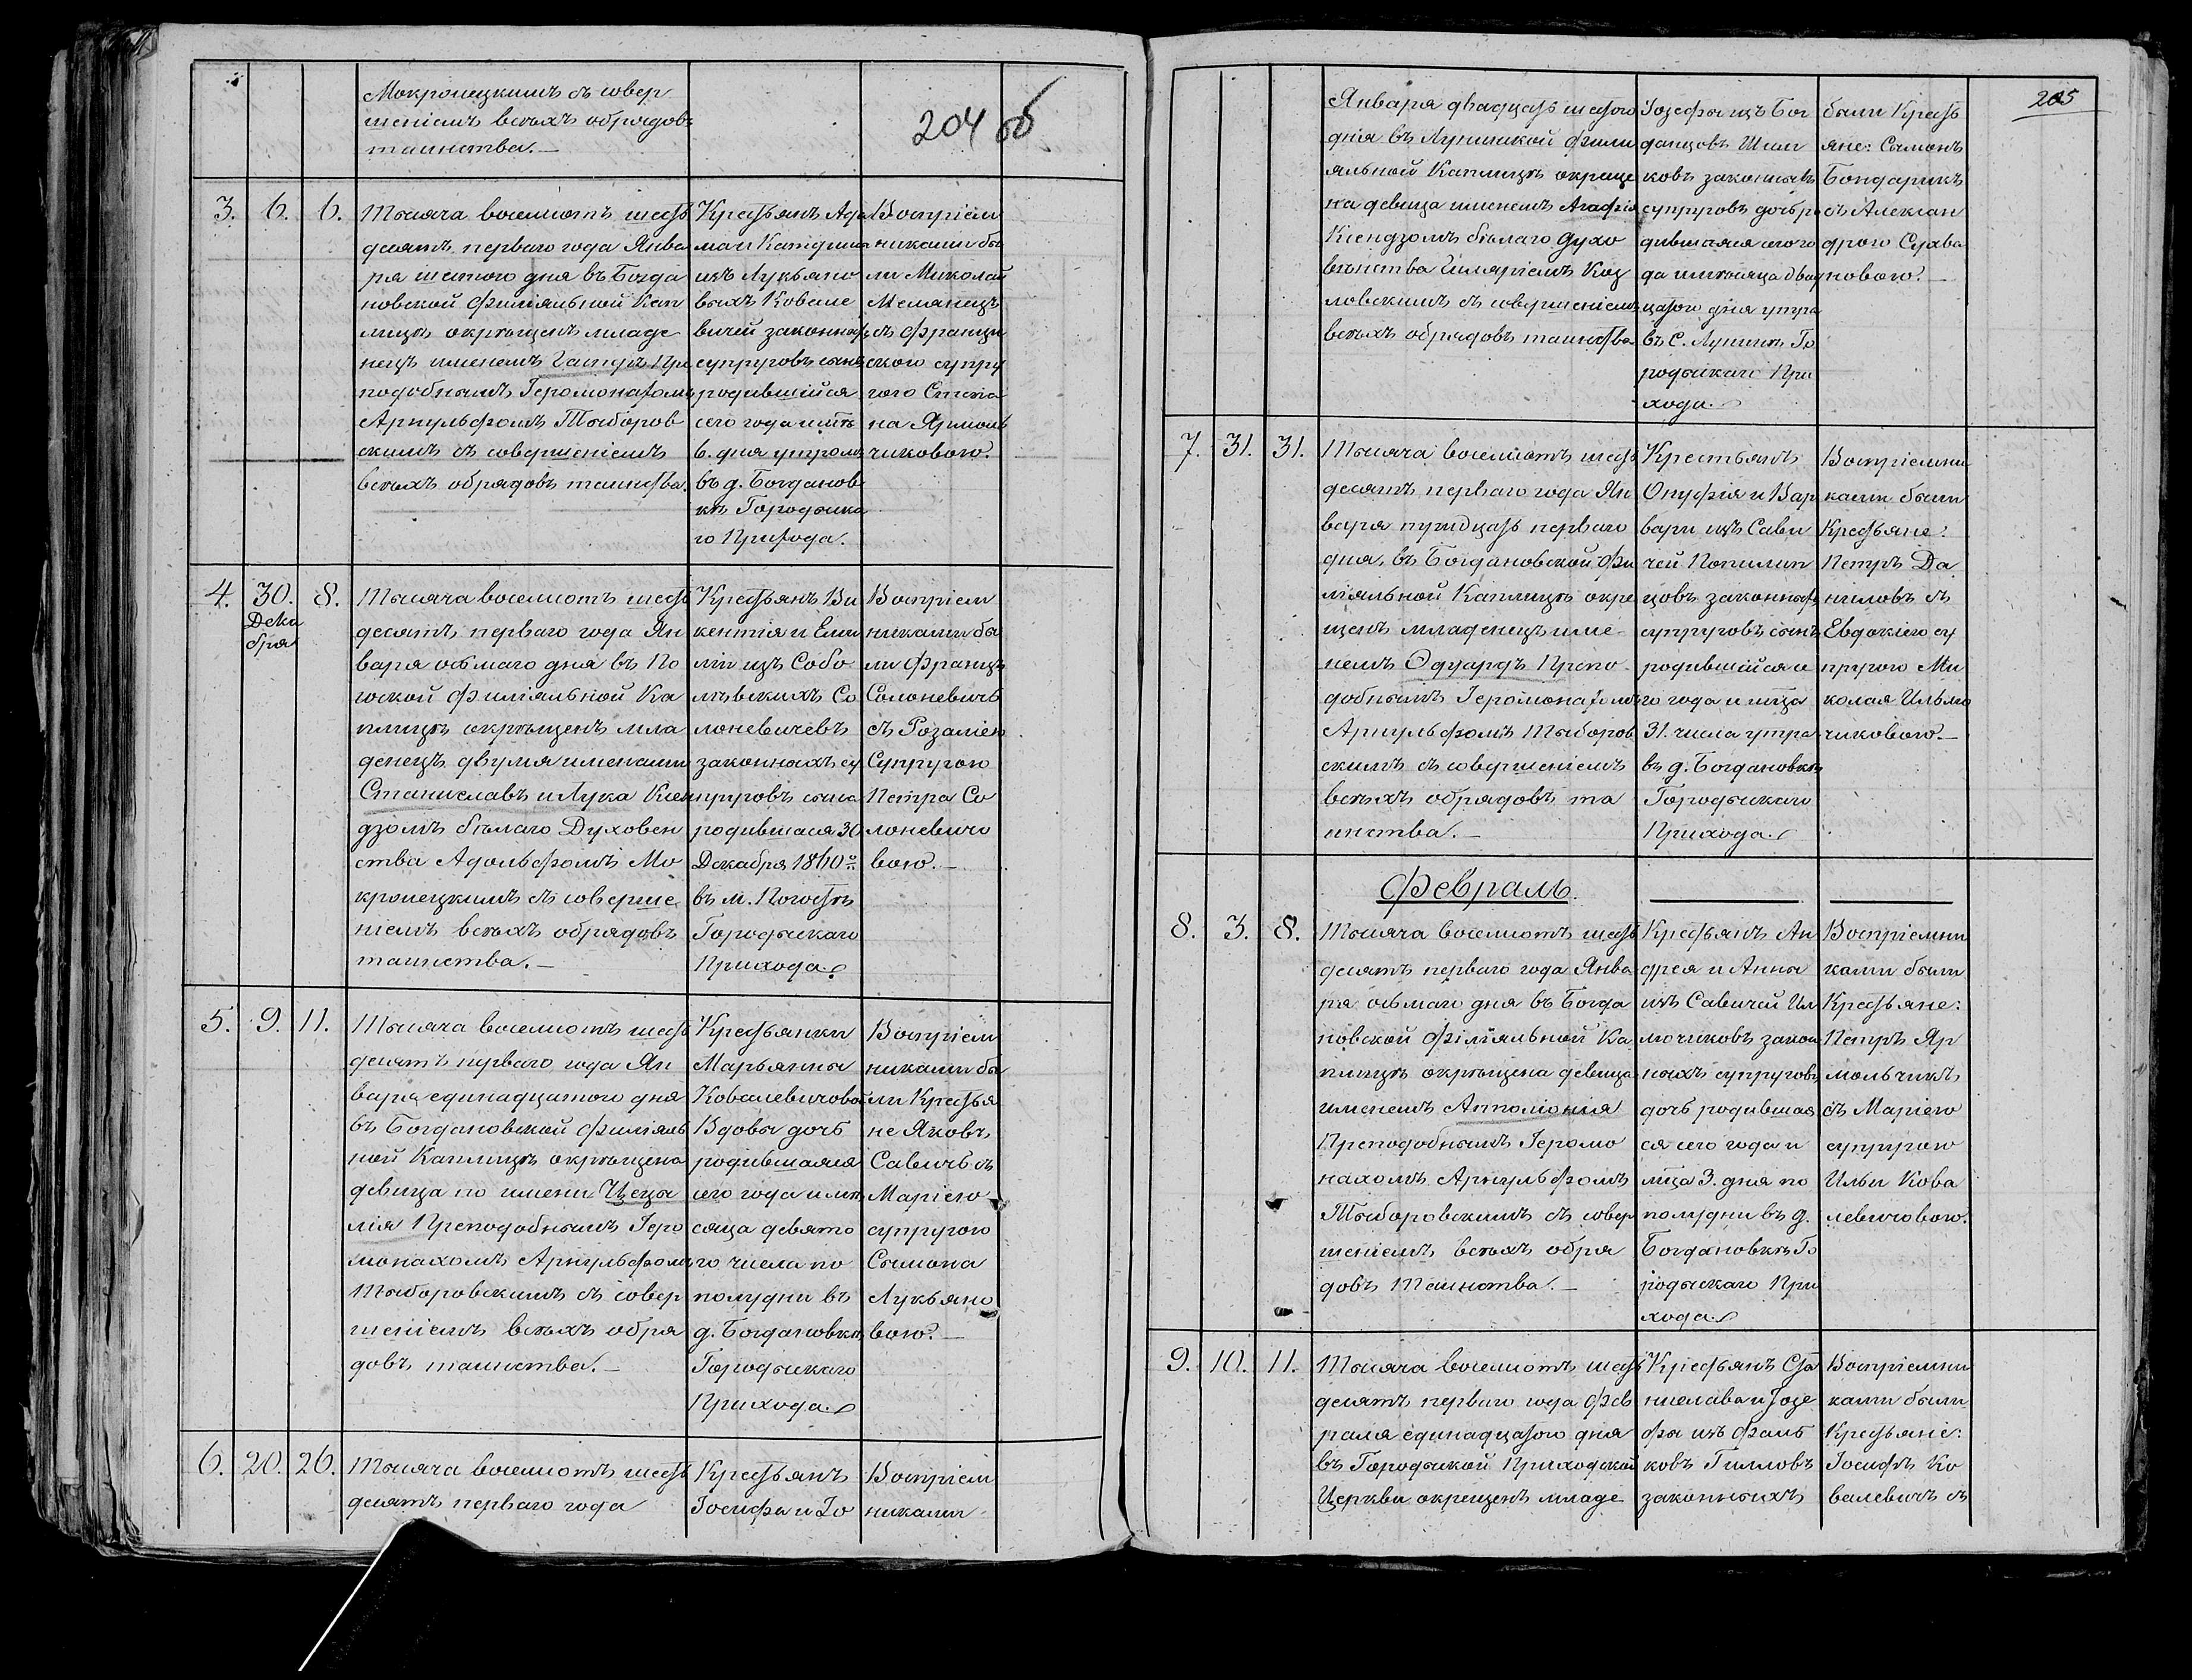 204 об
Мокронецкимъ съ совер
шеніемъ всѣхъ обрядовъ
таинства.—
3. 6. 6.
Тысяча восемьсотъ шесть
десятъ перваго года Янва
ря шестого дня въ Богда
новской Филіяльной Кап
лицѣ окрѣщенъ младе
нецъ именемъ Гаспаръ Пре
подобнымъ Іеромонахомъ
Арнульфомъ Тыборов
скимъ съ совершеніемъ
всѣхъ обрядовъ таинства.
Крестьянъ Ада
ма и Катарины
изъ Лукьяно
выхъ Ковале
вичей законныхъ
супруговъ сынъ
родившійся
сего года и м-ца
6. дня утромъ
въ д. Богданов
кѣ Городыска
го Прихода.
Воспріем
никами бы
ли Миколай
Меланецъ
съ Францы
скою супру
гою Степа
на Ярмоль
чиковою.
4. 30. 8.
Дека
бря
Тысяча восемьсотъ шесть
десятъ перваго года Ян
варя осьмаго дня въ По
гоской Филіяльной Ка
плицѣ окрѣщенъ мла
денецъ двумя именами
Станиславъ и Лука Ксен
дзомъ бѣлаго Духовен
ства Адольфомъ Мо
кронецкимъ съ соверше
ніемъ всѣхъ обрядовъ
таинства.—
Крестьянъ Ви
кентія и Еми
ліи изъ Собо
лѣвскихъ Со
лоневичевъ
законныхъ су
пруговъ сына
родившася 30
Декабря 1860 го
въ м. Погостѣ
Городыскаго
Прихода.
Воспріем
никами бы
ли Францъ
Солоневичъ
съ Розаліею
Супругою
Петра Со
лоневичо
вою.—
5. 9. 11.
Тысяча восемьсотъ шесть
десятъ перваго года Ян
варя единадцатого дня
въ Богдановской Филіяль
ной Каплицѣ окрѣщена
девица по имени Цеца
лія Преподобнымъ Іеро
монахомъ Арнульфомъ
Тыборовскимъ съ совер
шеніемъ всѣхъ обря
довъ таинства.—
Крестьянки
Марьянны
Ковалевичовой
Вдовы дочь
родившаяся
сего года и мѣ
сяца девято
го числа по
полудни въ
д. Богдановкѣ
Городыскаго
Прихода.
Воспріем
никами бы
ли Крестья
не Яковъ
Савичъ съ
Маріею
супругою
Сымона
Лукьяно
вою.—
6. 20. 26.
Тысяча восемьсотъ шесть
десятъ перваго года
Крестьянъ
Іосифа и Іо
Воспріем
никами
205
Января двадцать шестого
дня въ Лунинской Фили
яльной Каплицѣ окреще
на девица именемъ Агафія
Ксендзомъ бѣлаго Духо
вѣнства Иляріемъ Коз
ловскимъ съ совершеніемъ
всѣхъ обрядовъ таинства
Іозефы изъ Бог
данцовъ Шим
ковъ законныхъ
супруговъ дочь ро
дившаяся сего го
да и мѣсяца двад
цатого дня утра
въ С. Лунинѣ Го
родыскаго При
хода.
были Кресть
яне: Сымонъ
Бондарикъ
съ Алексан
дрою Сухва
новою.—
7. 31. 31.
Тысяча восемьсотъ шесть
десятъ перваго года Ян
варя тридцать перваго
дня, въ Богдановской Фи
ліяльной Каплицѣ окре
щенъ младенецъ име-
немъ Эдуардъ Препо
добнымъ Іеромонахомъ
Арнульфомъ Тыборов
скимъ съ совершеніемъ
всѣхъ обрядовъ та
инства.—
Крестьянъ
Онуфрія и Вар
вары изъ Сави
чей Попилип
цовъ законныхъ
супруговъ сынъ
родившійся се
го года и м-ца
31. числа утра
въ д. Богдановкѣ
Городыскаго
Прихода.
Воспріемни
ками были
Крестьяне:
Петръ Да
ниловъ съ
Евдокіею су
пругою Ми
колая Ильмо
чиковою.—
Февраль.
8. 3. 8.
Тысяча восемьсотъ шесть
десятъ перваго года Янва
ря осьмаго дня въ Богда
новской Філіяльной Ка
плицѣ окрѣщена девица
именемъ Апполіонія
Преподобнымъ Іеромо
нахомъ Арнульфомъ
Тыборовскимъ съ совер
шеніемъ всѣхъ обря
довъ таинства.—
Крестьянъ Ан
дрея и Анны
изъ Савичей Ил
мочиковъ закон
ныхъ супруговъ
дочь родившая
ся сего года и
м-ца 3. дня по
полудни въ д.
Богдановкѣ Го
родыскаго При
хода.
Воспріемни
ками были
Крестьяне:
Петръ Яр
мольчикъ
съ Маріею
супругою
Ильи Кова
левичовою.
9. 10. 11.
Тысяча восемьсотъ шесть
десятъ перваго года Фев
раля единадцатого дня
въ Городыской Приходской
Церкви окрещенъ младе
Крестьянъ Ста
нислава и Іозе
фы изъ Фаль
ковъ Гилловъ
законныхъ
Воспріемни
ками были
Крестьяне:
Іосифъ Ко
валевичъ съ